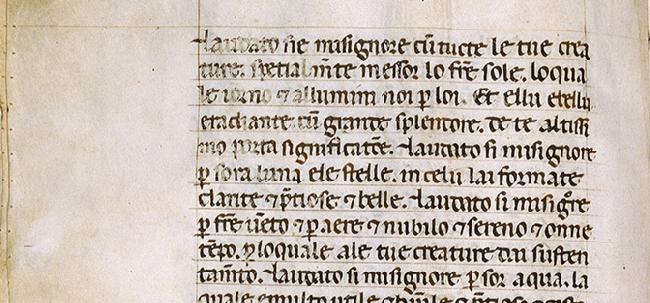 Laudato sie misignore cũ tucte le tue crea
ture. spetialm̃te messor lo frẽ sole. loqua
le iorno ⁊ allumini noi ꝑ loi. Et ellu ebellu
eradiante cũ grande splendore. de te altissi
mo porta significatõe. Laudato si misignore
ꝑ sora luna ele stelle. in celu lai formate
clarite ⁊ p̃tiose ⁊ belle. Laudato si misig̃re
ꝑ frẽ uẽto ⁊ ꝑ aere ⁊ nubilo ⁊ sereno ⁊ onne
tẽpo. ꝑ loquale ale tue creature dai susten
tam̃to. Laudato si misignore ꝑ sor aqua. la
quale emulto utile ⁊ hũile ⁊ p̃tiosa ⁊ casta